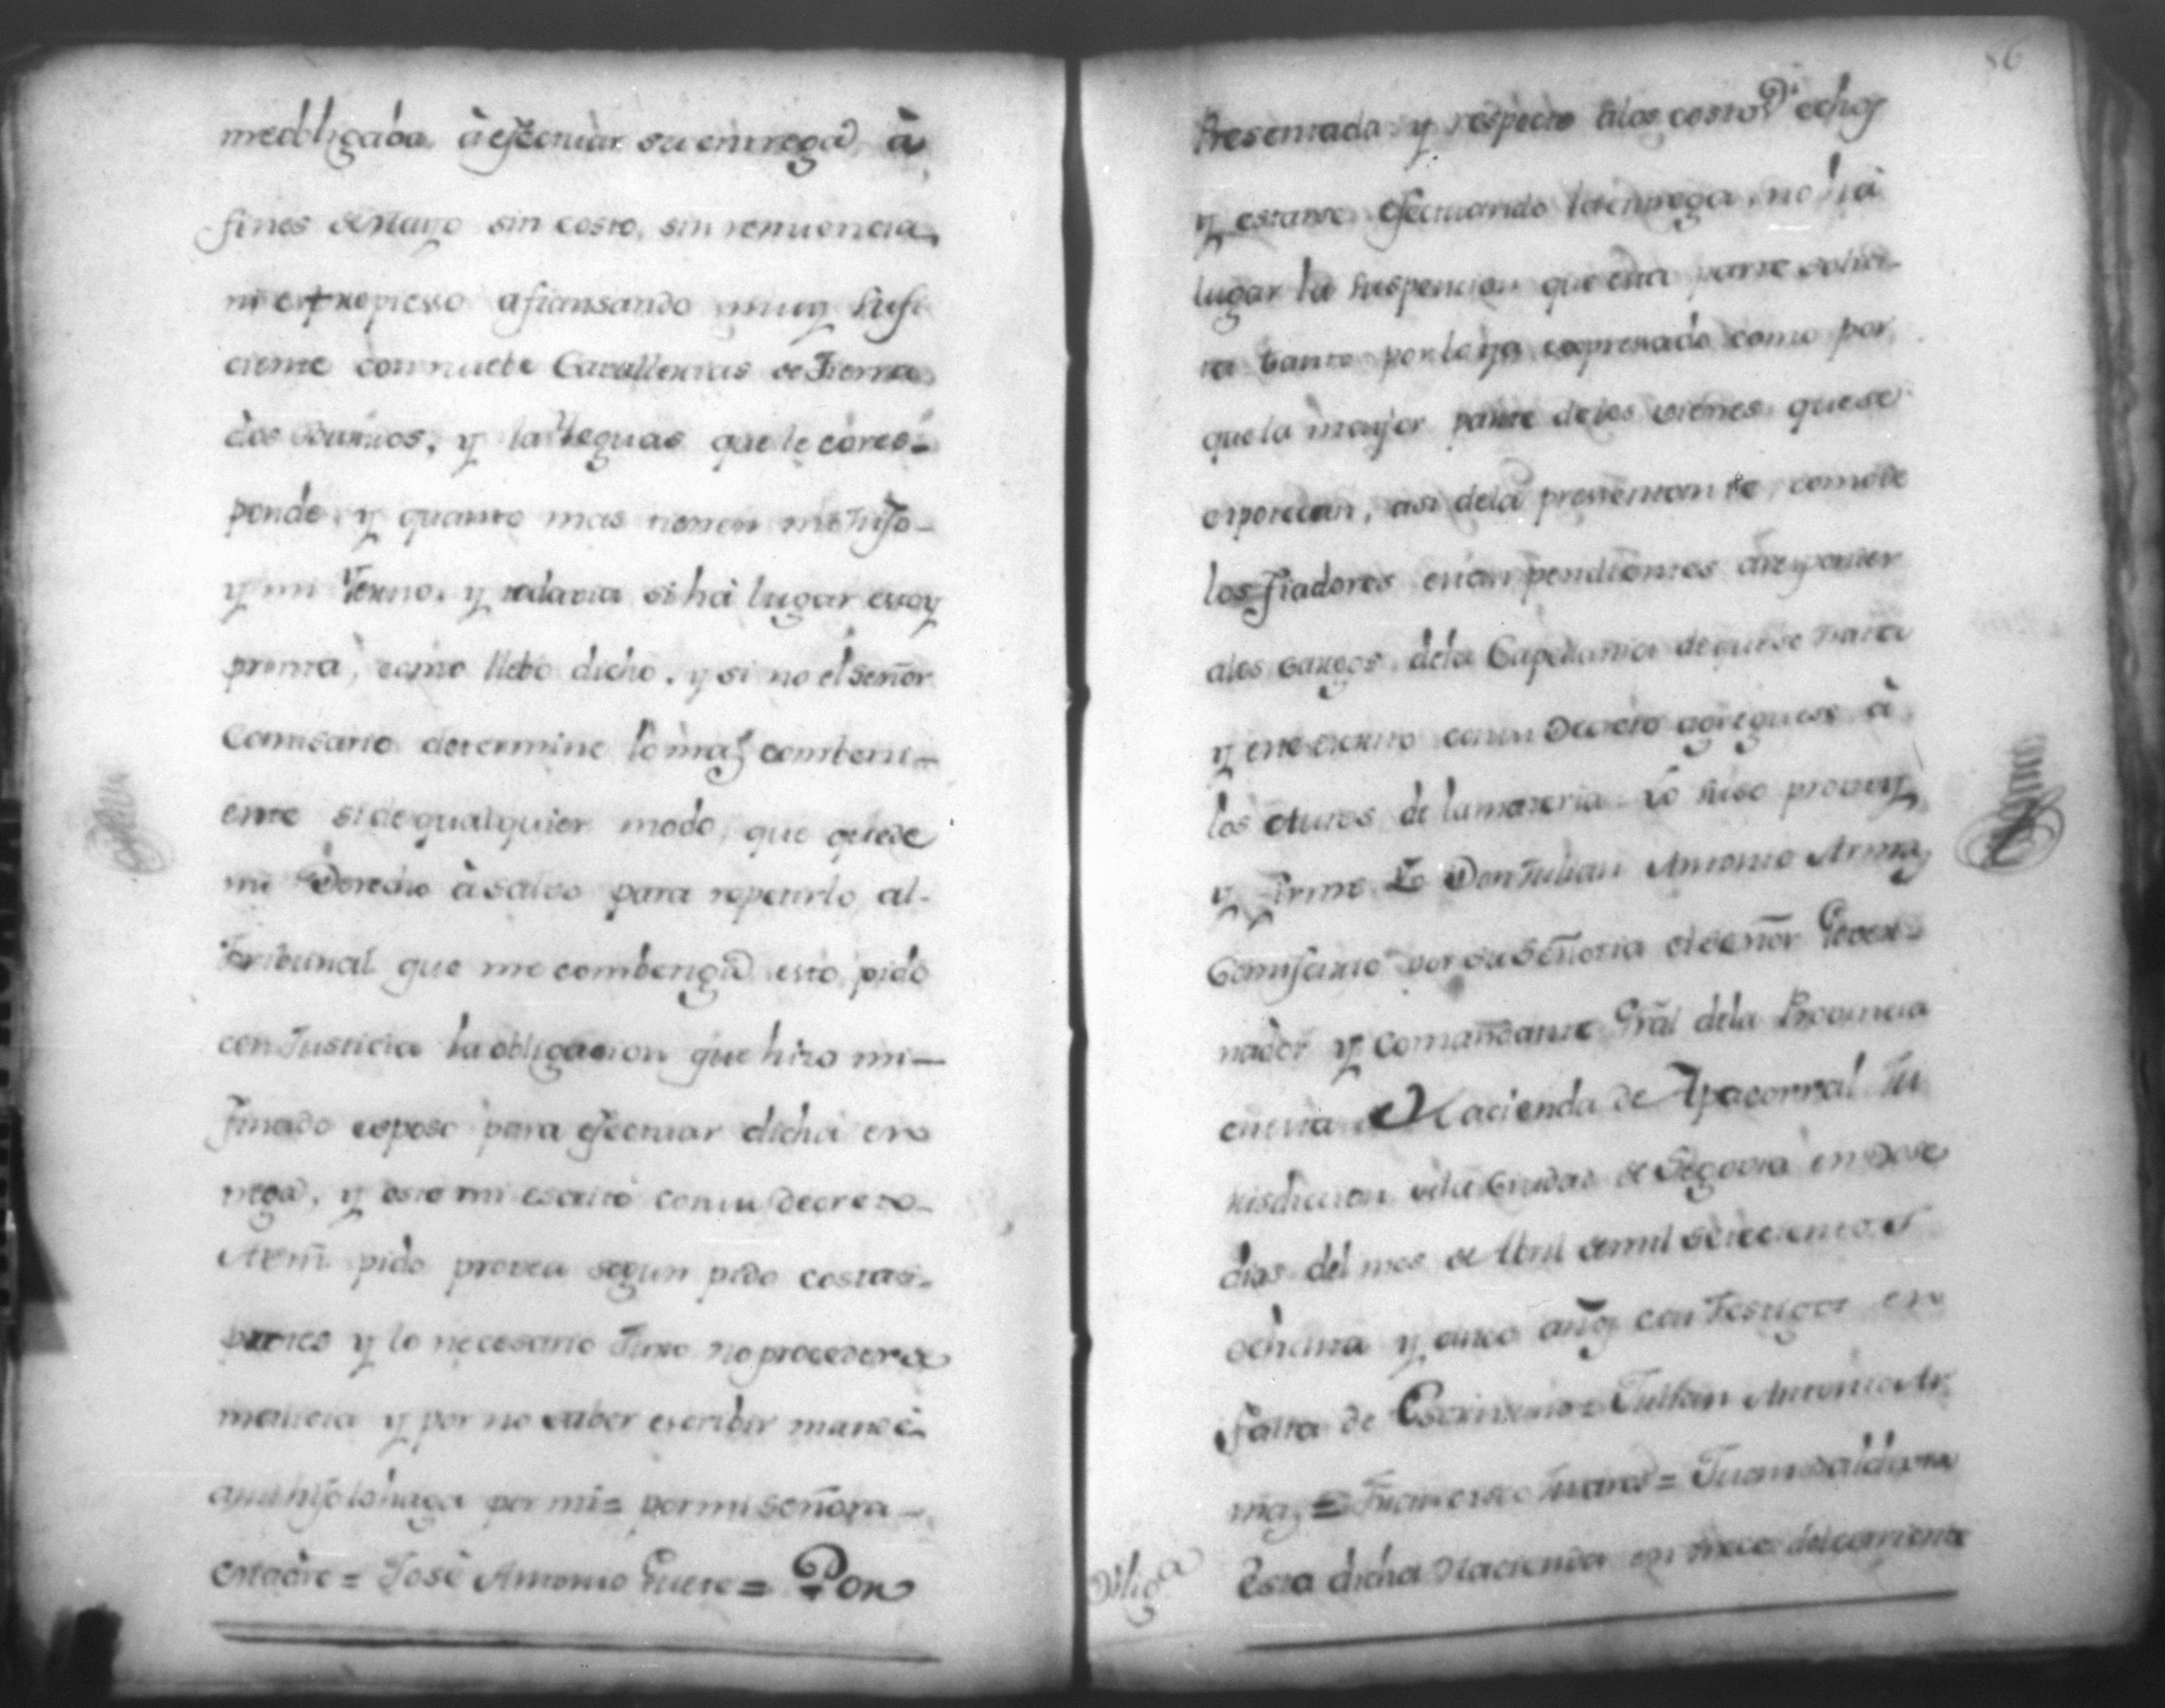 meobligaba à efectuar su entrega, à
fines de Mayo sin costo, sin renuencia
ni expropiesso afiansando muy sufi
ciente con nuebe Cavallerias de Tierra
dos Burros, y las Yeguas que le cores-
ponde, y quanto mas tienen mi hijo
y mi Yerno, y todavia si há lugar estoy
pronta, como llebo dicho, y si no el señor
Comisario determine lo mas combeni-
ente si de qualquier modo, que quede
mi Derecho à salvo para repetirlo al
Tribunal que me combenga esto pido
con Justicia la obligacion que hizo mi
finado esposo para efectuar dicha en
trega, y este mi escrito con su decreto
A Vm̃ pido provea segun pido costas
partes y lo necesario Juro no proceder de
malicia y por no saber escribir mandè
a mi hijo lo haga por mi= por mi señora
Madre= José Antonio = Por
86
Presentada y respecto à los costos Dr̃echos
y estarse efectuando la entrega, no há
lugar la suspencion que esta parte solici-
ta tanto por lo ya expresado como por
que la mayor parte de los vienes que se
, asi de la presentante, como de
los fiadores estan pendientes à responder
a los cargos de la Capellania de que se trata
y este escrito con su Decreto agreguese à
los Autos de la materia. Lo hiso provey
y firmo Yo Don Julian Antonio Armas
Comisario por su Señoria el señor Gover-
nador y comandante Gr̃al de la Provincia
en esta Hacienda de Apacorral Ju
risdiccion de la Ciudad de Segovia en Dose
dias del mes de Abril de mil setecientos
ochenta y cinco años con Testigos en
falta de Escrivano= Julian Antonio Ar
mas = Francisco Juares= Juan
Diliga
Esta dicha Hacienda en trece del corriente